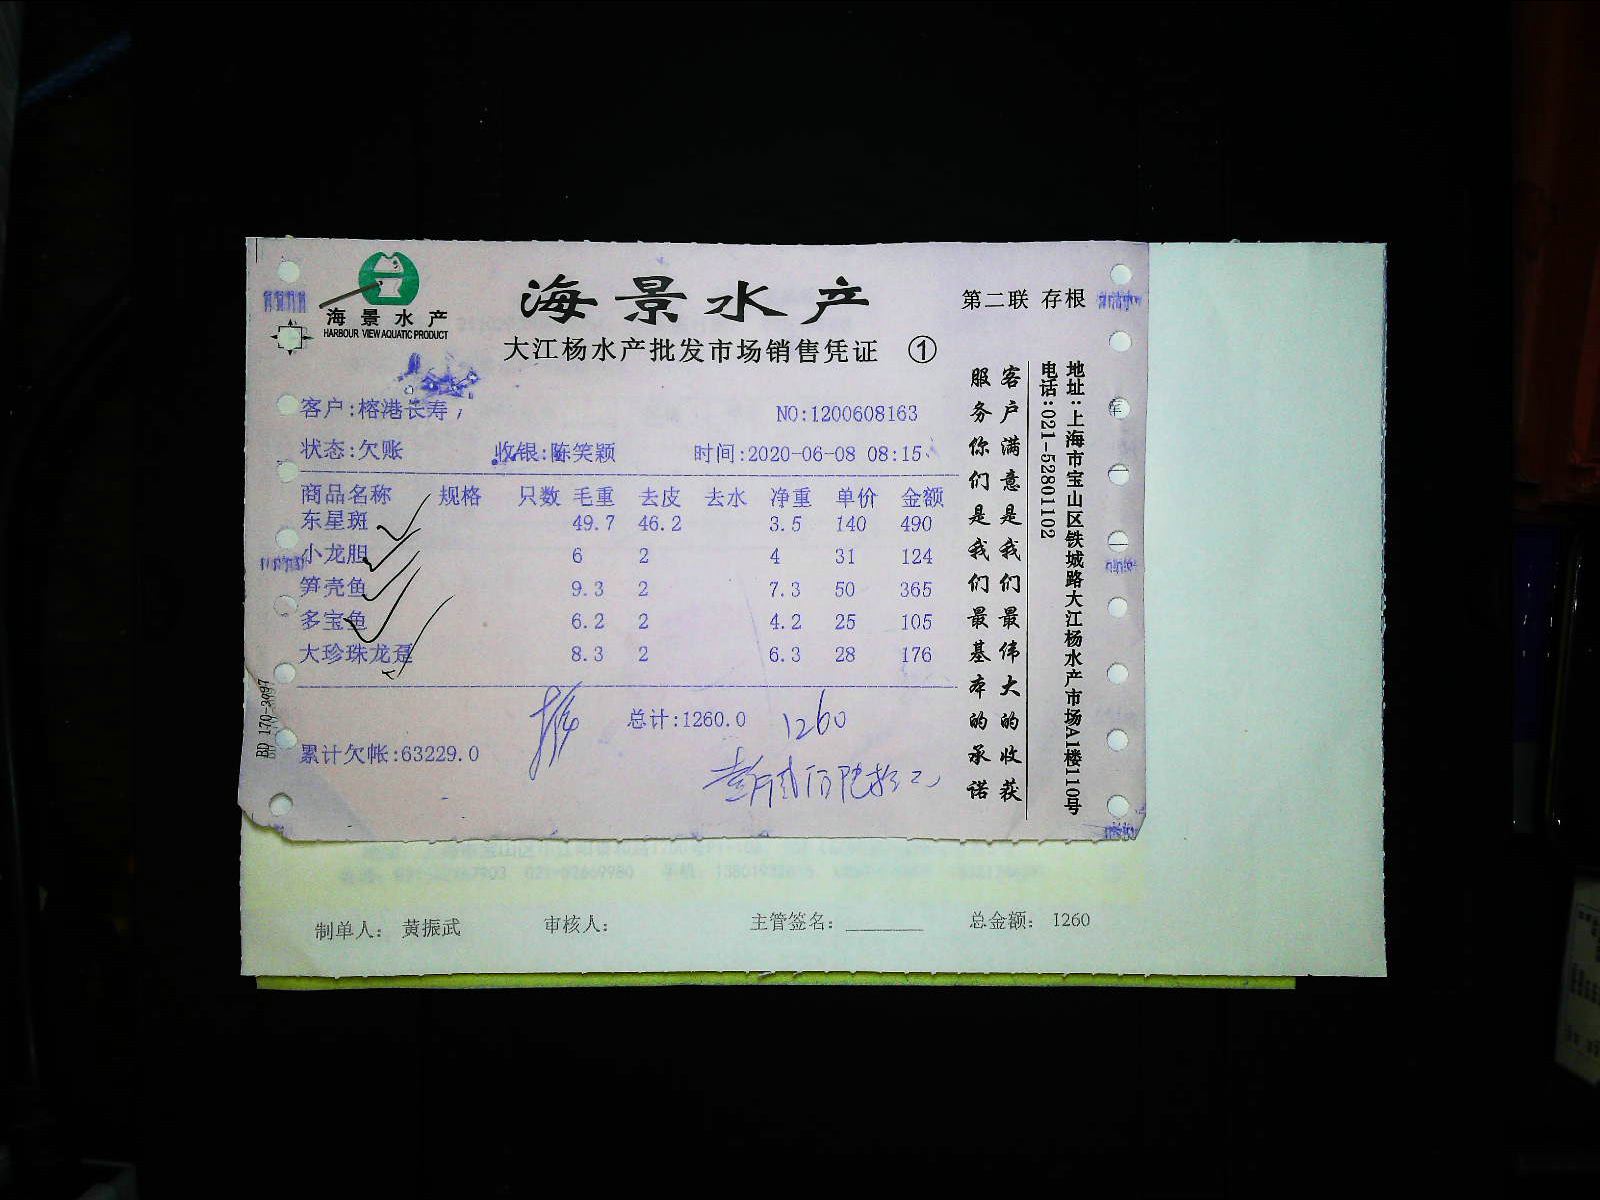 海景水产
HARBOUR VIEW AQUATIC PRODUCT
海景水产
第二联 存根
大江杨水产批发市场销售凭证 ①
客户:榕港长寿
NO:1200608163
状态:欠账 收银:陈笑颖 时间:2020-06-08 08:15
商品名称 规格 只数 毛重 去皮 去水 净重 单价 金额
东星斑 49.7 46.2 3.5 140 490
小龙胆 6 2 4 31 124
笋壳鱼 9.3 2 7.3 50 365
多宝鱼 6.2 2 4.2 25 105
大珍珠龙趸 8.3 2 6.3 28 176
总计:1260.0 1260
累计欠帐:63229.0
客户满意是我们最伟大的收获
服务你们是我们最基本的承诺
地址:上海市宝山区铁城路大江杨水产市场A1楼110号
电话:021-52801102
制单人: 黄振武 审核人: 主管签名: 总金额: 1260